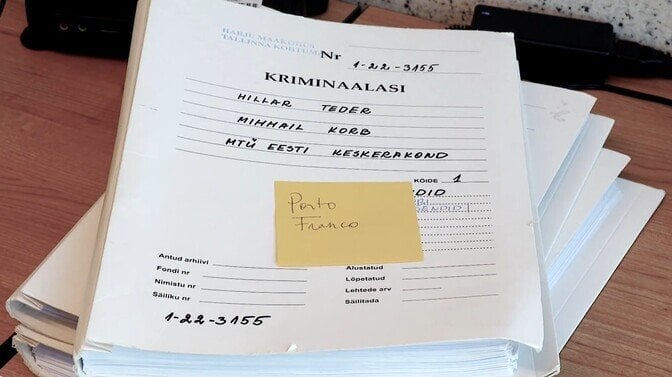 HARJU MAAKOHUS
TALLINNA KOHTUMAJA
Nr 1-22-3155
KRIMINAALASI
HILLAR TEDER
MIHHAIL KORB
MTÜ EESTI KESKERAKOND
KÖIDE 1
Porto
Franco
Antud arhiivi
Fondi nr
Nimistu nr
Säiliku nr
Alustatud
Lõpetatud
Lehtede arv
Säilitada
1-22-3155